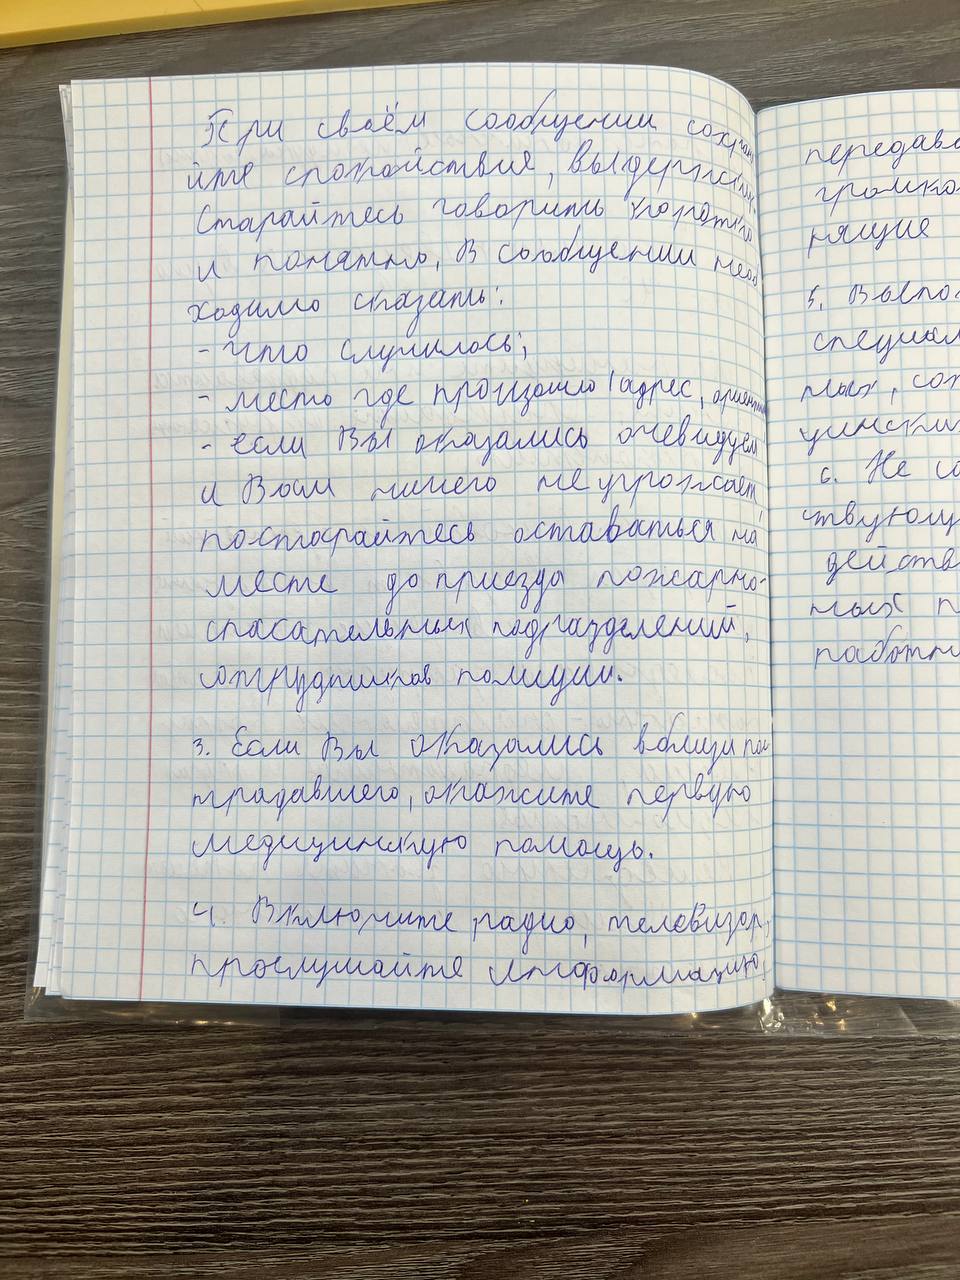 При своём сообщении сохраня
йте спокойствие, выдержку.
Старайтесь говорить коротко
и понятно, В сообщении необ
ходимо сказать:
- что случилось;
- место где произошло (адрес, ориентир
- если Вы оказались очевидцем
и Вам ничего не угрожает,
постарайтесь оставаться на
месте до приезда пожарно-
спасательных подразделений,
сотрудников полиции.
3. Если Вы оказались вблизи пос
традавшего, окажите первую
медицинскую помощь.
4. Включите радио, телевизор,
прослушайте информацию,
передава
громко
нящие
5. Выпо
специал
ных, сот
цински
6. Не со
ствую
действ
ных п
работн